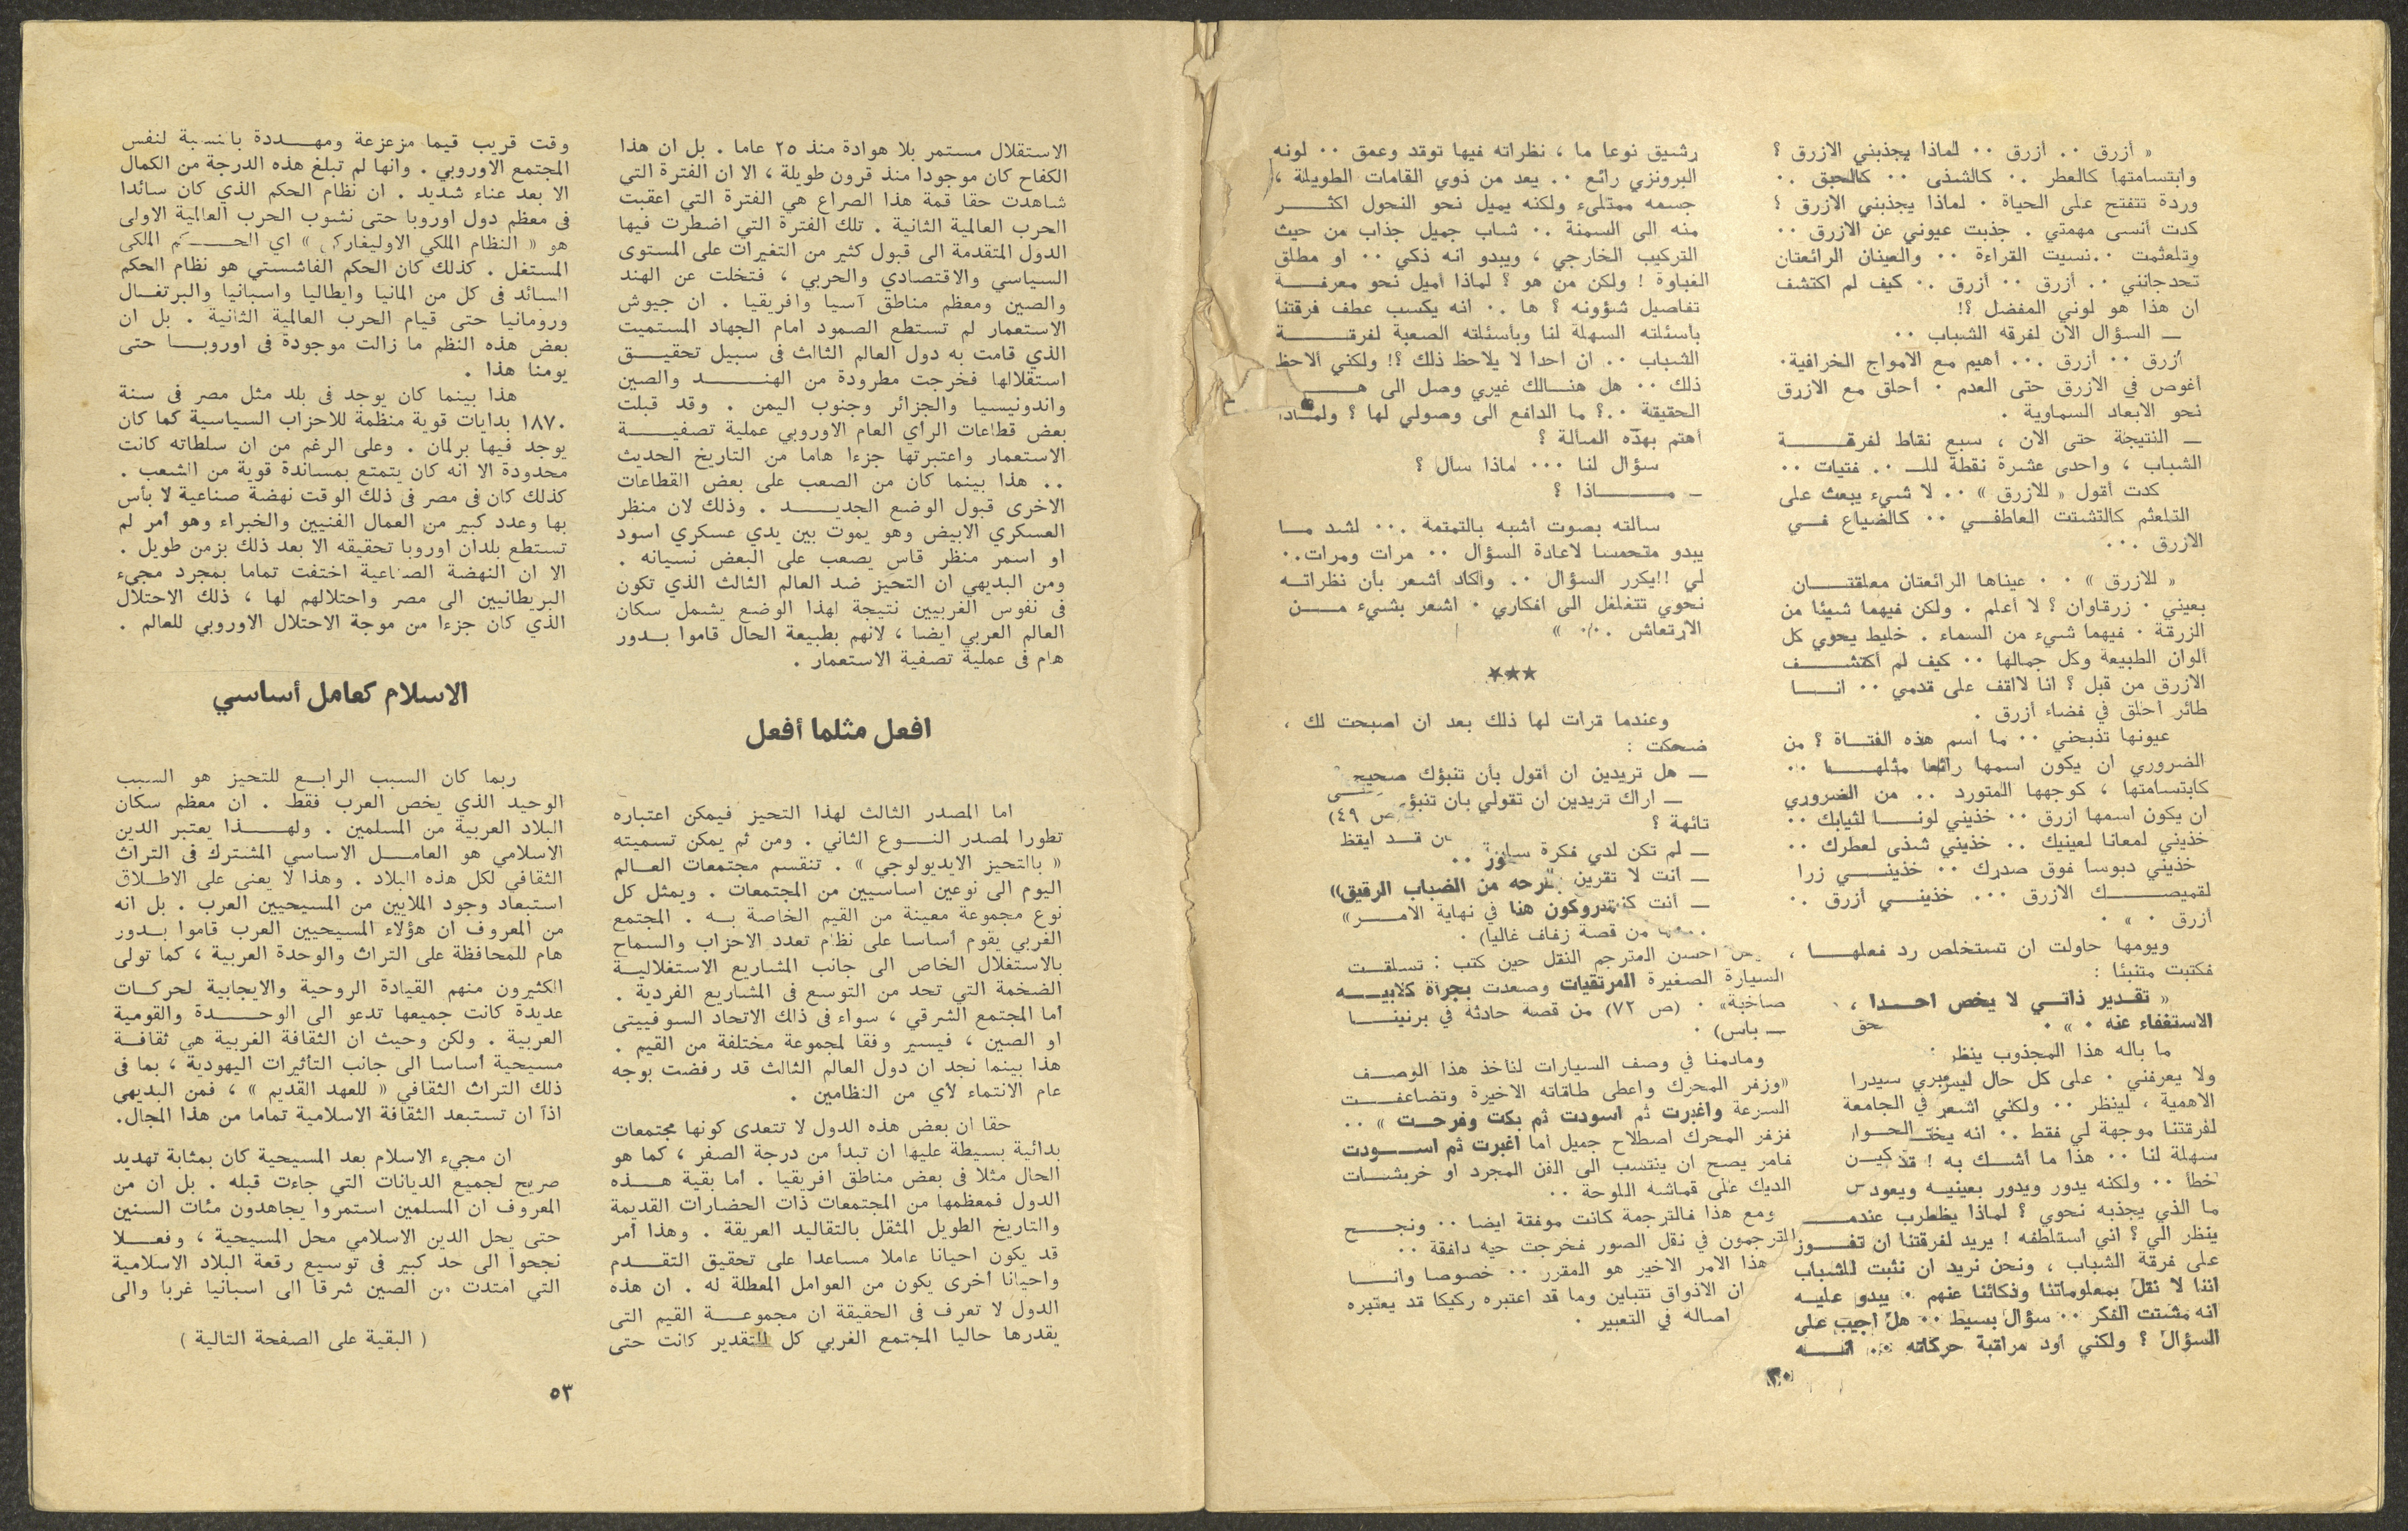 « أزرق ٠٠ أزرق ٠٠ لماذا يجذبني الازرق ؟
وابتسامتها كالعطر ٠٠ كالشذى ٠٠ كالحبق ٠٠
وردة تتفتح على الحياة ٠ لماذا يجذبني الازرق ؟
كدت أنسى مهمتي . جذبت عيوني عن الازرق ٠٠
وتلعثمت ٠٠نسيت القراءة ٠٠ والعينان الرائعتان
تحدجانني ٠٠ أزرق ٠٠ أزرق ٠٠ كيف لم اكتشف
ان هذا هو لوني المفضل ؟!
ــ السؤال الآن لفرقه الشباب ٠٠
أزرق ٠٠ أزرق ٠٠٠ أهيم مع الامواج الخرافية٠
أغوص في الازرق حتى العدم ٠ أحلق مع الازرق
نحو الابعاد السماوية .
ــ النتيجة حتى الان ، سبع نقاط لفرقــــة
الشباب ، واحدى عشرة نقطة للـ ٠٠ فتيات ٠٠
كدت أقول « للازرق » ٠٠ لا شيء يبعث على
التلعثم كالتشتت العاطفــي ٠٠ كالضياع فــي
الازرق ٠٠٠
« للازرق » ٠ ٠ عيناها الرائعتان معلقتــــان
بعيني ٠ زرقاوان ؟ لا أعلم . ولكن فيهما شيئا من
الزرقة ٠ فيهما شيء من السماء . خليط يحوي كل
ألوان الطبيعة وكل جمالها ٠٠ كيف لم أكتشــــف
الازرق من قبل ؟ انا لااقف على قدمي ٠٠ انــــا
طائر أحلق في فضاء أزرق .
عيونها تذبحني ٠٠ ما اسم هذه الفتــاة ؟ من
الضروري ان يكون اسمها رائعا مثلهــــا ٠٠
كابتسامتها ، كوجهها المتورد ٠٠ من الضروري
ان يكون اسمها ازرق ٠٠ خذيني لونــــا لثيابك ٠٠
خذيني لمعانا لعينيك ٠٠ خذيني شذى لعطرك ٠٠
خذيني دبوسا فوق صدرك ٠٠ خذينــــي زرا
لقميصــــــك الازرق ٠٠٠ خذينــــي أزرق ٠٠
أزرق ٠ » ٠
ويومها حاولت ان تستخلص رد فعلهــــا ،
فكتبت متنبئا :
« تقــدير ذاتــي لا يخص احــــدا ،
الاستغناء عنه ٠ » ٠
ما باله هذا المجذوب ينظر
ولا يعرفني ٠ على كل حال سيدرا
الاهمية ، لينظر ٠٠ ولكني اشعر في الجامعة
لفرقتنا موجهة لي فقط ٠٠ انه الحــوار
سهلة لنا ٠٠ هذا ما أشــك به !
خطأ ٠٠ ولكنه يدور ويدور بعينيــه ويعود
ما الذي يجذبه نحوي ؟ لماذا يظطرب عندمــــ
ينظر الي ؟ اني استلطفه ! يريد لفرقتنا ان تفــــوز
على فرقة الشباب ، ونحن نريد ان نثبت للشباب
اننا لا نقل بمعلوماتنا وذكائنا عنهم ٠ يبدو عليــه
انه مشتت الفكر ٠٠ سؤال بسيط ٠٠ هل أجيب على
السؤال ؟ ولكني أود مراقبة حركاته ٠٠ انــــه
رشيق نوعا ما ، نظراته فيها توقد وعمق ٠٠ لونه
البرونزي رائع ٠٠ يعد من ذوي القامات الطويلة ،
جسمه ممتلىء ولكنه يميل نحو النحول اكثــــر
منه الى السمنة ٠٠ شاب جميل جذاب من حيث
التركيب الخارجي ، ويبدو انه ذكي ٠٠ او مطلق
الغباوة ! ولكن من هو ؟ لماذا أميل نحو معرفــــة
تفاصيل شؤونه ؟ ها ٠٠ انه يكسب عطف فرقتنا
باسئلته السهلة لنا وبأسئلته الصعبة لفرقــــة
الشباب ٠٠ ان احدا لا يلاحظ ذلك ؟! ولكني ألاحظ
ذلك ٠٠ هل هنــالك غيري وصل الى هــــ
الحقيقة ٠٠؟ ما الدافع الى وصولي لها ؟ ولمــاذا
أهتم بهذه المسألة ؟
سؤال لنا ٠٠٠ ماذا سأل ؟
ــ مــــــاذا ؟
سألته بصوت أشبه بالتمتمة ٠٠٠ لشد مــا
يبدو متحمسا لاعادة السؤال ٠٠ مرات ومرات٠٠
لي !!يكرر السؤال ٠٠ وأكاد أشعر بأن نظراتــه
نحوي تتغلغل الى افكاري ٠ اشعر بشيء مــــن
الارتعاش ٠٠٠ »
★★★
وعندما قرات لها ذلك بعد ان اصبحت لك ،
ضحكت :
ــ هل تريدين ان أقول بأن تنبؤك صحيح
ــ اراك تريدين ان تقولي بان
تائهة ؟ ص ٤٩)
ــ لم تكن لدي فكرة قــد ايقظ
ــ انت لا تقرين من الضباب الرقيق))
ــ أنت هنا في نهاية الامــــر»
من قصة زفاف غاليا) ٠
احسن المترجم النقل حين كتب : تسلقــت
السيارة الصغيرة المرتقيات وصعدت بجرأة كلابيــــه
صاخبة» ٠ (ص ٧٢) من قصة حادثة في برنينــــا
ــ باس) ٠
ومادمنا في وصف السيارات لنأخذ هذا الوصــف
«وزفر المحرك واعطى طاقاته الاخيرة وتضاعفــــت
السرعة واغبرت ثم اسودت ثم بكت وفرحــت » ٠٠
فزفر المحرك اصطلاح جميل اما أغبرت ثم اســــودت
فامر يصح ان ينتسب الى الفن المجرد او خربشــات
الديك على قماشة اللوحة ٠٠
ومع هذا فالترجمة كانت موفقة ايضا ٠٠ ونجــــح
المترجمون في نقل الصور فخرجت حيه دافقة ٠٠
هذا الامر الاخير هو المقرر ٠٠ خصوصا وانــــا
ان الاذواق تتباين وما قد اعتبره ركيكا قد يعتبره
اصاله في التعبير ٠
الاستقلال مستمر بلا هوادة منذ ٢٥ عاما . بل ان هذا
الكفاح كان موجودا منذ قرون طويلة ، الا ان الفترة التي
شاهدت حقا قمة هذا الصراع هي الفترة التي اعقبت
الحرب العالمية الثانية . تلك الفترة التي اضطرت فيها
الدول المتقدمة الى قبول كثير من التغيرات على المستوى
السياسي والاقتصادي والحربي ، فتخلت عن الهند
والصين ومعظم مناطق آسيا وافريقيا . ان جيوش
الاستعمار لم تستطع الصمود امام الجهاد المستميت
الذي قامت به دول العالم الثالث في سبيل تحقيــق
استقلالها فخرجت مطرودة من الهنــــد والصين
واندونيسيا والجزائر وجنوب اليمن . وقد قبلت
بعض قطاعات الرأي العام الاوروبي عملية تصفيــــة
الاستعمار واعتبرتها جزءا هاما من التاريخ الحديث
.. هذا بينما كان من الصعب على بعض القطاعات
الاخرى قبول الوضع الجديــــد . وذلك لان منظر
العسكري الابيض وهو يموت بين يدي عسكري اسود
او اسمر منظر قاس يصعب على البعض نسيانه .
ومن البديهي ان التحيز ضد العالم الثالث الذي تكون
في نفوس الغربيين نتيجة لهذا الوضع يشمل سكان
العالم العربي ايضا ، لانهم بطبيعة الحال قاموا بــدور
هام في عملية تصفية الاستعمار .
افعل مثلما أفعل
اما المصدر الثالث لهذا التحيز فيمكن اعتباره
تطورا لمصدر النــوع الثاني . ومن ثم يمكن تسميته
« بالتحيز الايديولوجي » . تنقسم مجتمعات العــالم
اليوم الى نوعين اساسيين من المجتمعات . ويمثل كل
نوع مجموعة معينة من القيم الخاصة بــه . المجتمع
الغربي يقوم أساسا على نظام تعدد الاحزاب والسماح
بالاستغلال الخاص الى جانب المشاريع الاستغلاليــة
الضخمة التي تحد من التوسع في المشاريع الفردية .
أما المجتمع الشرقي ، سواء في ذلك الاتحاد السوفييتى
او الصين ، فيسير وفقا لمجموعة مختلفة من القيم .
هذا بينما نجد ان دول العالم الثالث قد رفضت بوجه
عام الانتماء لأي من النظامين .
حقا ان بعض هذه الدول لا تتعدى كونها مجتمعات
بدائية بسيطة عليها ان تبدأ من درجة الصفر ، كما هو
الحال مثلا في بعض مناطق افريقيا . أما بقية هــذه
الدول فمعظمها من المجتمعات ذات الحضارات القديمة
والتاريخ الطويل المثقل بالتقاليد العريقة . وهذا أمر
قد يكون احيانا عاملا مساعدا على تحقيق التقــدم
واحيانا أخرى يكون من العوامل المعطلة له . ان هذه
الدول لا تعرف في الحقيقة ان مجموعــة القيم التى
يقدرها حاليا المجتمع الغربي كل التقدير كانت حتى
وقت قريب قيما مزعزعة ومهــــددة بالنسبة لنفس
المجتمع الاوروبي . وانها لم تبلغ هذه الدرجة من الكمال
الا بعد عناء شديد . ان نظام الحكم الذي كان سائدا
في معظم دول اوروبا حتى نشوب الحرب العالمية الاولى
هو « النظام الملكي الاوليغاركي » اي الحــكم الملكى
المستغل . كذلك كان الحكم الفاشستي هو نظام الحكم
السائد في كل من المانيا وايطاليا واسبانيا والبرتغــال
ورومانيا حتى قيام الحرب العالمية الثانية . بل ان
بعض هذه النظم ما زالت موجودة في اوروبــــا حتى
يومنا هذا .
هذا بينما كان يوجد في بلد مثل مصر في سنة
١٨٧٠ بدايات قوية منظمة للاحزاب السياسية كما كان
يوجد فيها برلمان . وعلى الرغم من ان سلطاته كانت
محدودة الا انه كان يتمتع بمساندة قوية من الشعب .
كذلك كان في مصر في ذلك الوقت نهضة صناعية لا بأس
بها وعدد كبير من العمال الفنيين والخبراء وهو أمر لم
تستطع بلدان اوروبا تحقيقه الا بعد ذلك بزمن طويل .
الا ان النهضة الصناعية اختفت تماما بمجرد مجيء
البريطانيين الى مصر واحتلالهم لها ، ذلك الاحتلال
الذي كان جزءا من موجة الاحتلال الاوروبي للعالم .
الاسلام كعامل أساسي
ربما كان السبب الرابــع للتحيز هو السبب
الوحيد الذي يخص العرب فقط . ان معظم سكان
البلاد العربية من المسلمين . ولهــــذا يعتبر الدين
الاسلامي هو العامــــل الاساسي المشترك في التراث
الثقافي لكل هذه البلاد . وهذا لا يعنى على الاطــلاق
استبعاد وجود الملايين من المسيحيين العرب . بل انه
من المعروف ان هؤلاء المسيحيين العرب قاموا بــدور
هام للمحافظة على التراث والوحدة العربية ، كما تولى
الكثيرون منهم القيادة الروحية والايجابية لحركــات
عديدة كانت جميعها تدعو الى الوحــــدة والقومية
العربية . ولكن وحيث ان الثقافة الغربية هي ثقافــة
مسيحية أساسا الى جانب التأثيرات اليهودية ، بما في
ذلك التراث الثقافي « للعهد القديم » ، فمن البديهي
اذآ ان تستبعد الثقافة الاسلامية تماما من هذا المجال.
ان مجيء الاسلام بعد المسيحية كان بمثابة تهديد
صريح لجميع الديانات التي جاءت قبله . بل ان من
المعروف ان المسلمين استمروا يجاهدون مئات السنين
حتى يحل الدين الاسلامي محل المسيحية ، وفعــــلا
نجحوا الى حد كبير في توسيع رقعة البلاد الاسلامية
التي امتدت من الصين شرقا الى اسبانيا غربا والى
( البقية على الصفحة التالية )
٥٣